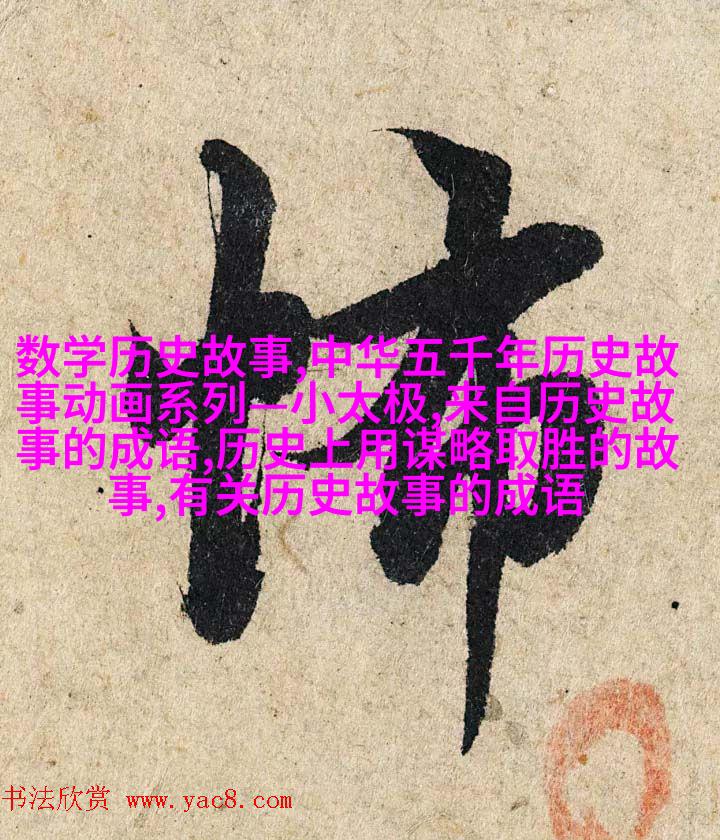 怖
数学历史故事,中华五千年历史故
事动画系列—小太极,来自历史故
事的成语,历史上用谋略取胜的故
事,有关历史故事的成语
书法欣赏 www.yac8.com